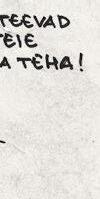 TEEVAD
TEIE
A TEHA!